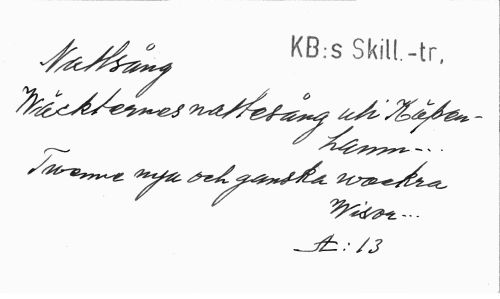 KB:s Skill.-tr.
Nattsång
Wäckternes nattesång uti Köpen-
hamn...
Twenne nya och ganska wackra
Wisor...
Æ: 13